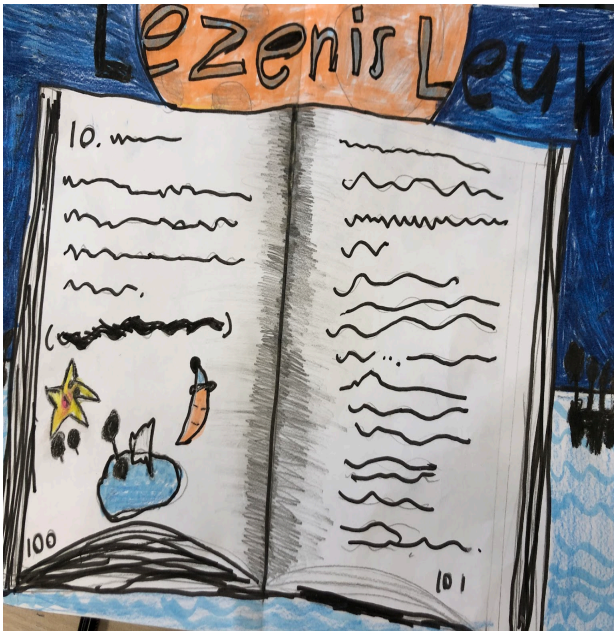 Lezen is Leuk
10.
100
101